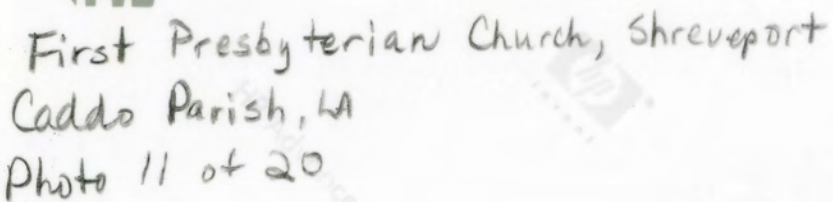 First Presbyterian Church, Shreveport
Caddo Parish, LA
Photo 11 of 20
hp
invent